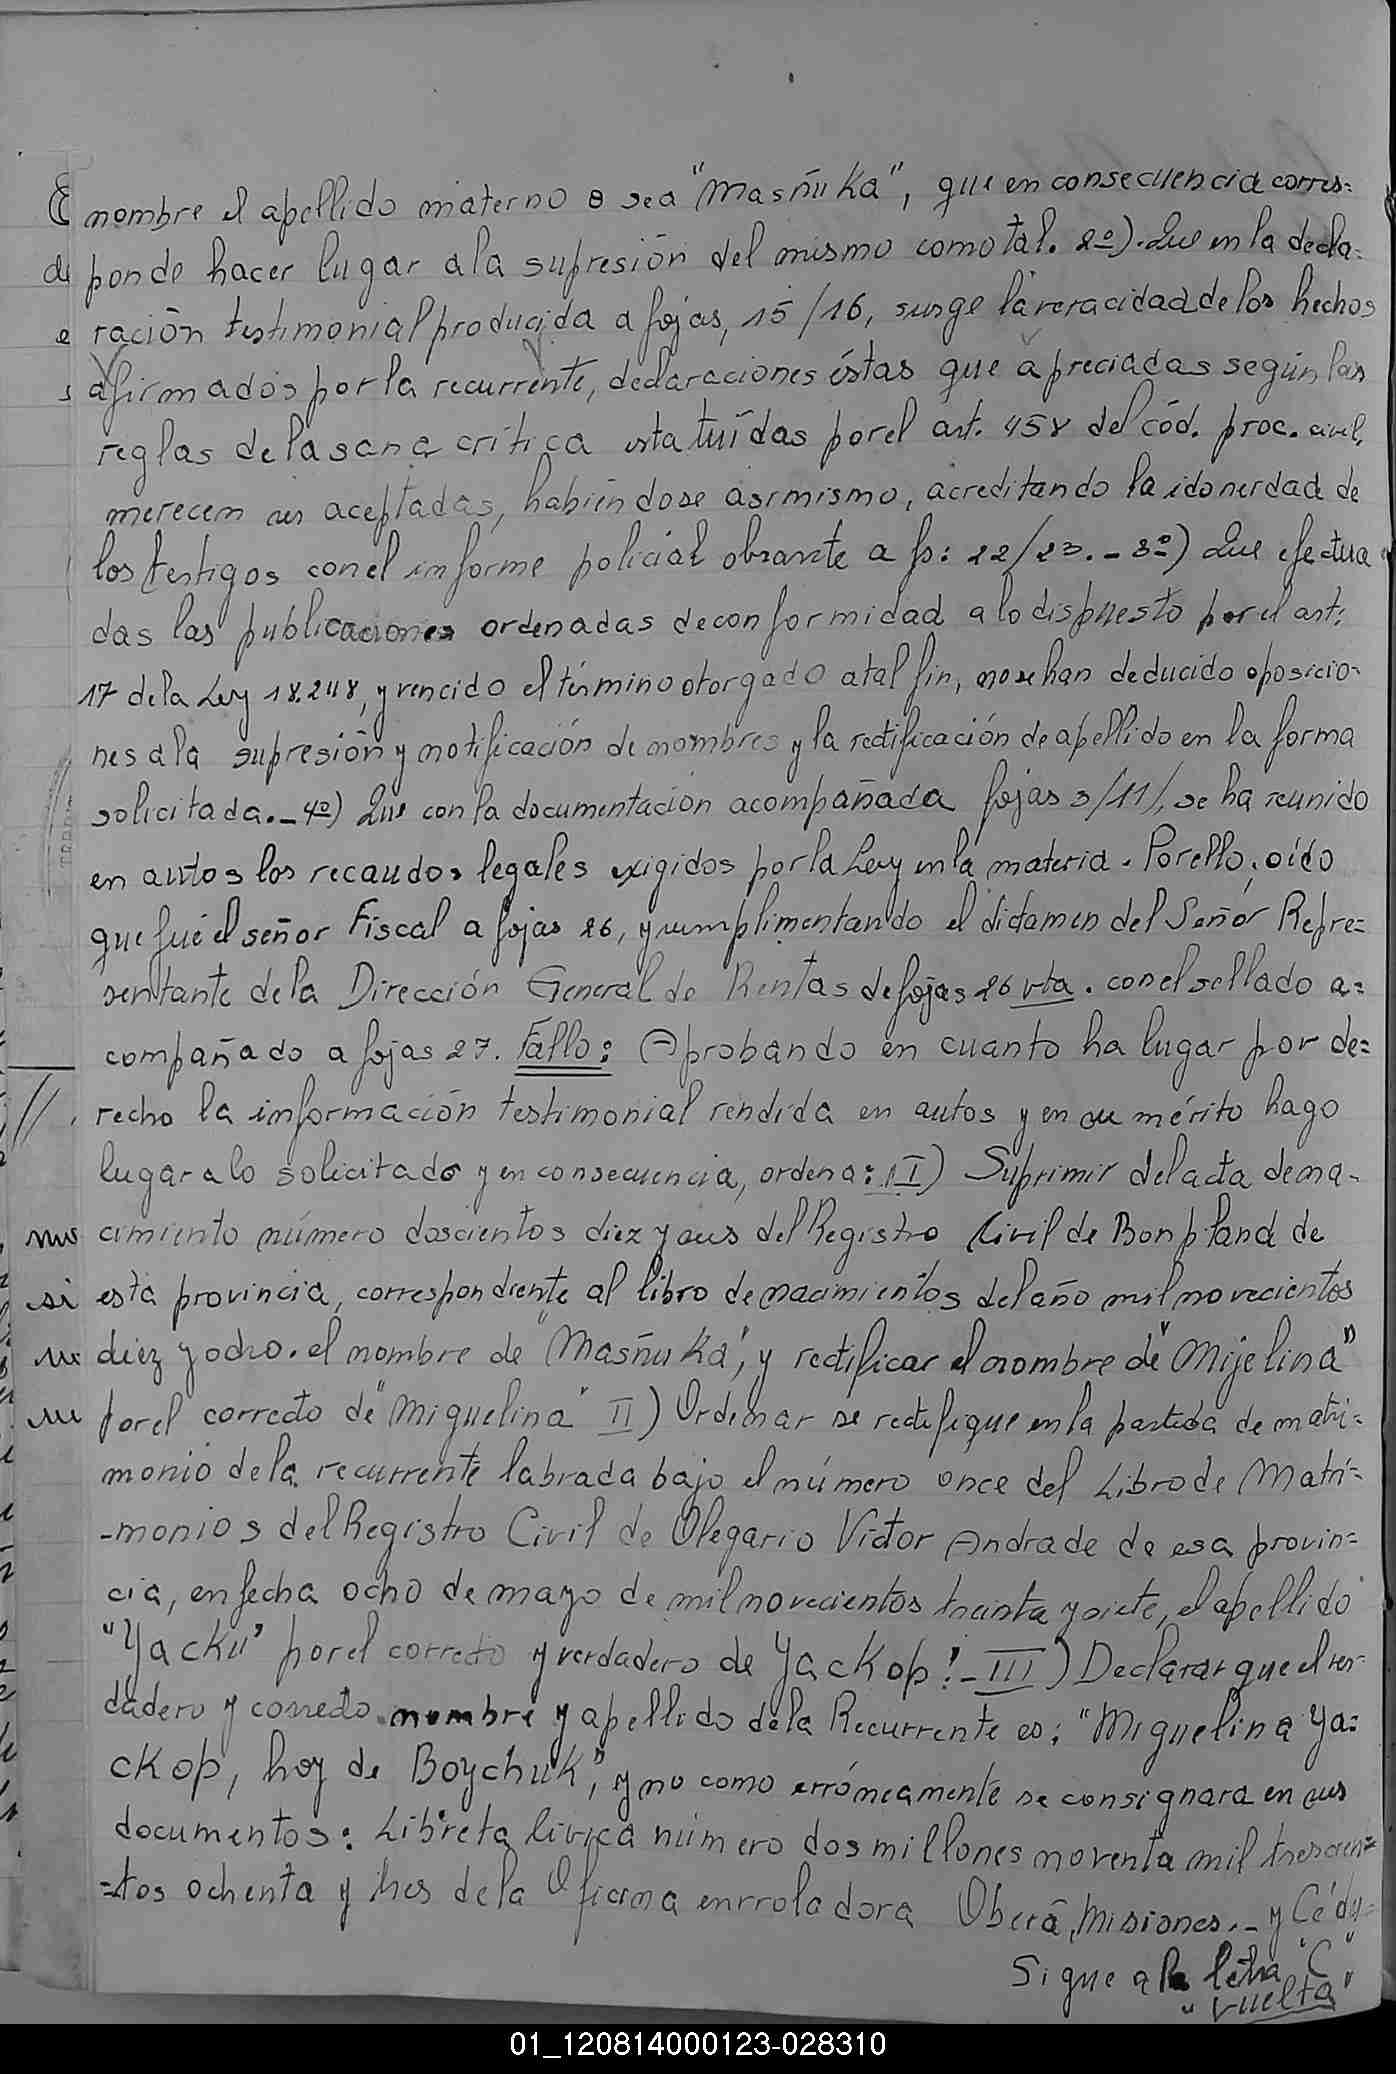 nombre el apellido materno o sea "Masñuka", que en consecuencia corres=
ponde hacer lugar a la supresión del mismo como tal. 2º). Que en la decla=
ración testimonial producida a fojas, 15/16, surge la veracidad de los hechos
afirmados por la recurrente, declaraciones éstas que apreciadas según las
reglas de la sana crítica estatuídas por el art. 458 del cód. proc. civil,
merecen ser aceptadas, habiéndose asimismo, acreditando la idoneidad de
los testigos con el informe policial obrante a fs: 22/23. - 3º) Que efectua
das las publicaciones ordenadas de conformidad a lo dispuesto por el art.
17 de la Ley 18.248, y vencido el término otorgado a tal fin, no se han deducido oposicio-
nes a la supresión y notificación de nombres y la rectificación de apellido en la forma
solicitada. - 4º) Que con la documentación acompañada fojas 3/11/, se ha reunido
en autos los recaudos legales exigidos por la Ley en la materia. Por ello, oído
que fué el señor Fiscal a fojas 26, y cumplimentando el dictamen del Señor Repre=
sentante de la Dirección General de Rentas de fojas 26 vta. con el sellado a=
compañado a fojas 27. Fallo: Aprobando en cuanto ha lugar por de=
recho la información testimonial rendida en autos y en su mérito hago
lugar a lo solicitado y en consecuencia, ordena: I) Suprimir del acta de na-
cimiento número doscientos diez y seis del Registro Civil de Bonpland de
esta provincia, correspondiente al libro de nacimientos del año mil novecientos
diez y ocho. el nombre de "Masñuka", y rectificar el nombre de "Mijelina"
por el correcto de "Miguelina" II) Ordenar se rectifique en la partida de matri=
monio de la recurrente labrada bajo el número once del Libro de Matri=
-monios del Registro Civil de Olegario Victor Andrade de esa provin=
cia, en fecha ocho de mayo de mil novecientos treinta y siete, el apellido
"Yacku" por el correcto y verdadero de Yackop! - III) Declarar que el ver-
dadero y correcto nombre y apellido de la Recurrente es: "Miguelina Ya=
ckop, hoy de Boychuk", y no como erróneamente se consignara en sus
documentos: Libreta Cívica número dos millones noventa mil trescien=
=tos ochenta y tres de la Oficina enrroladora Oberá, Misiones. - y Cédu=
Sigue a la letra "C"
"vuelta"
01_120814000123-028310